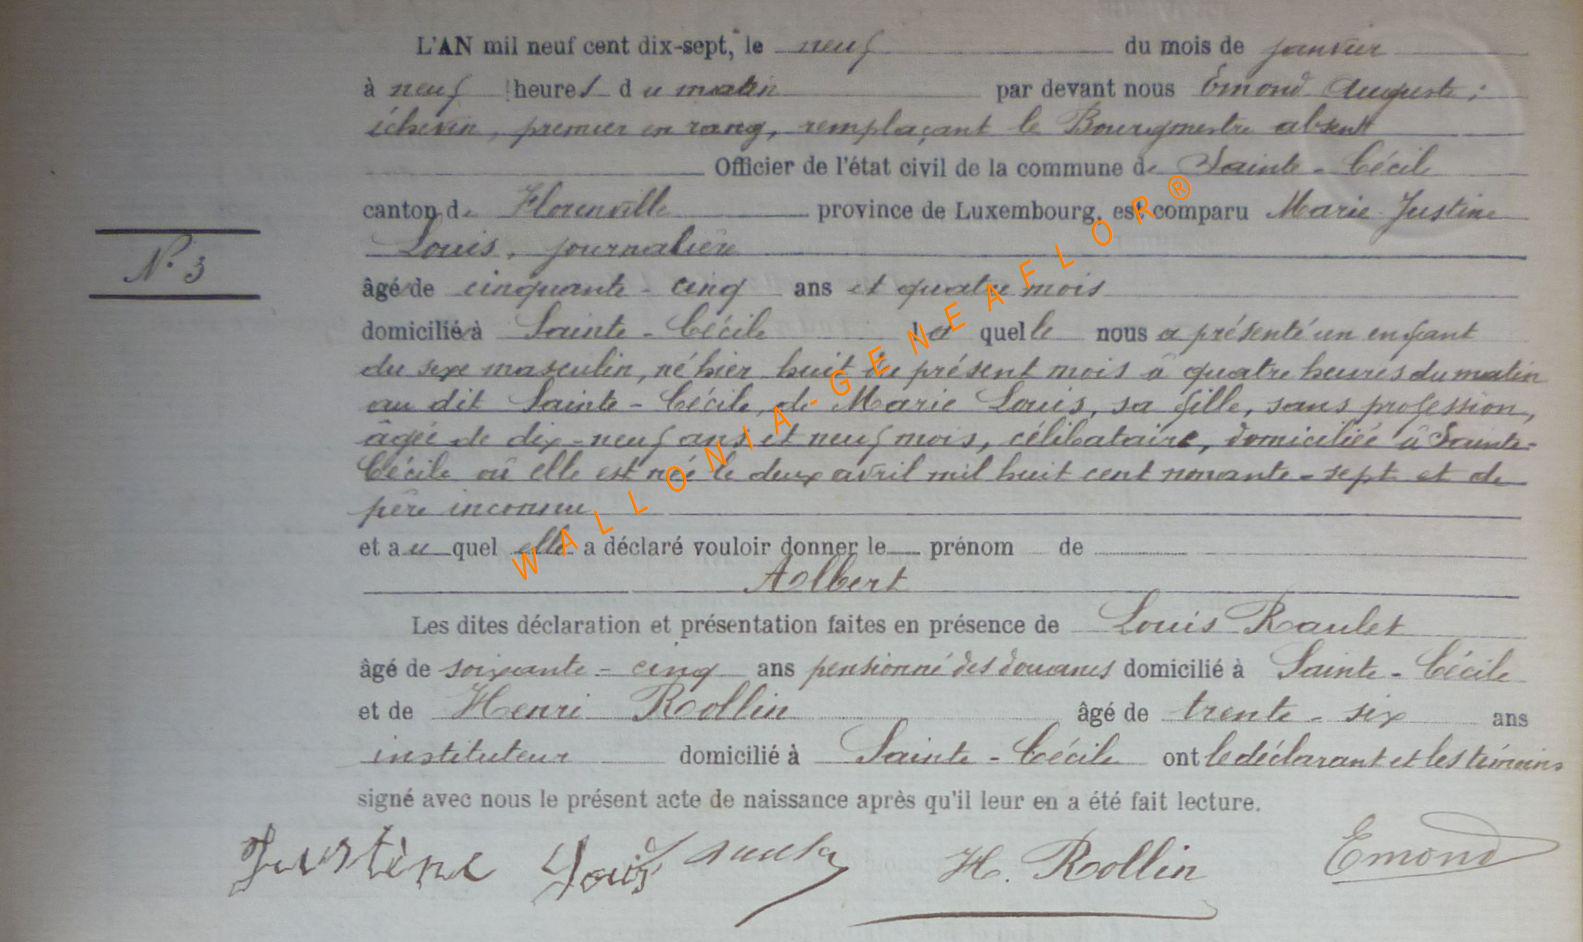 L'AN mil neuf cent dix-sept, le neuf du mois de janvier
à neuf heures du matin par devant nous Emond Auguste,
échevin, premier en rang, remplaçant le Bourgmestre absent
Officier de l'état civil de la commune de Sainte-Cécile
canton de Florenville province de Luxembourg, est comparu Marie Justine
Louis, journalière
N° 3
âgée de cinquante-cinq ans et quatre mois
domiciliée à Sainte-Cécile laquelle nous a présenté un enfant
du sexe masculin, né hier huit du présent mois à quatre heures du matin
au dit Sainte-Cécile, de Marie Louis, sa fille, sans profession,
âgée de dix-neuf ans et neuf mois, célibataire, domiciliée à Sainte-
Cécile où elle est née le deux avril mil huit cent nonante-sept et de
père inconnu
et auquel elle a déclaré vouloir donner le prénom de
Albert
Les dites déclaration et présentation faites en présence de Louis Raulet
âgé de soixante-cinq ans pensionné des douanes domicilié à Sainte-Cécile
et de Henri Rollin âgé de trente-six ans
instituteur domicilié à Sainte-Cécile ont le déclarant et les témoins
signé avec nous le présent acte de naissance après qu'il leur en a été fait lecture.
Justine Louis H. Rollin Emond
WALLONIA-GENEAFLOR®